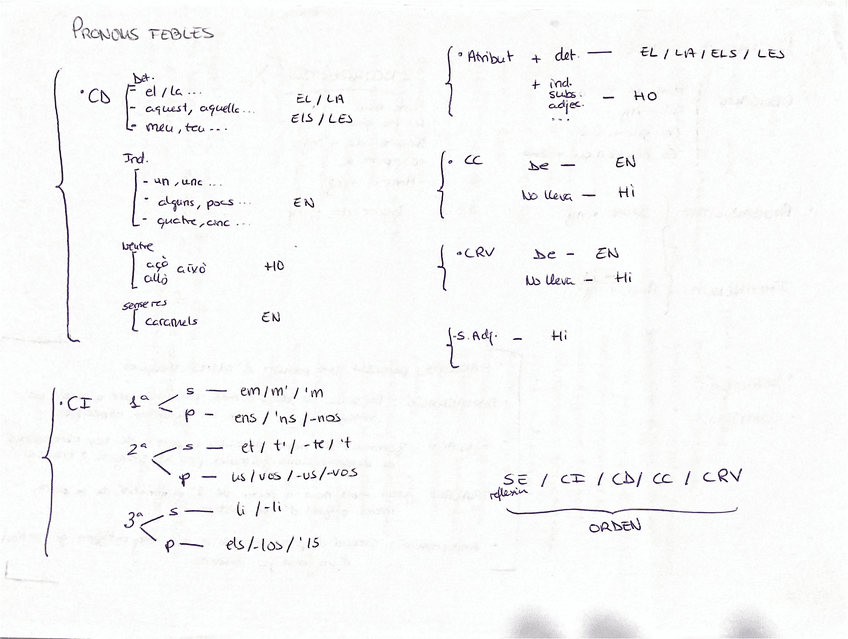 PRONOMS FEBLES
· CD
Det.
- el / la ...
- aquest, aquella ...
- meu, teu ...
EL / LA
ElS / LES
Ind.
- un, una ...
- alguns, pocs ...
- quatre, cinc ...
EN
Neutre
açò això
allò
HO
caramels
EN
· CI
1ª
s — em / m' / 'm
p — ens / 'ns / -nos
2ª
s — et / t' / -te / 't
p — us / vos / -us / -vos
3ª
s — li / -li
p — els / -los / 'ls
· Atribut + det. — EL / LA / ELS / LES
+ ind.
subs.
adjec. — HO
...
· CC De — EN
No lleva — Hi
· CRV De — EN
No lleva — Hi
- S. Adj. — Hi
SE / CI / CD / CC / CRV
reflexiu
ORDEN